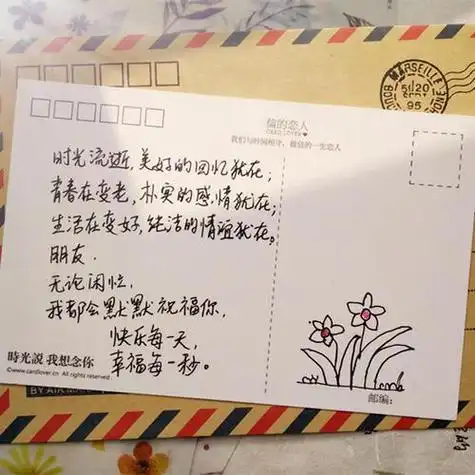 倫的恋人
CARD LOVER
时光流逝,美好的回忆犹在;
青春在变老,朴实的感情犹在;
生活在变好,纯洁的情谊犹在。
朋友.
无论闲忙,
我都会默默祝福你,
快乐每一天,
幸福每一秒。
時光説 我想念你
©www.cardlover.cn All rights reserved
邮编:
BY AIR
MARSEILLE
95